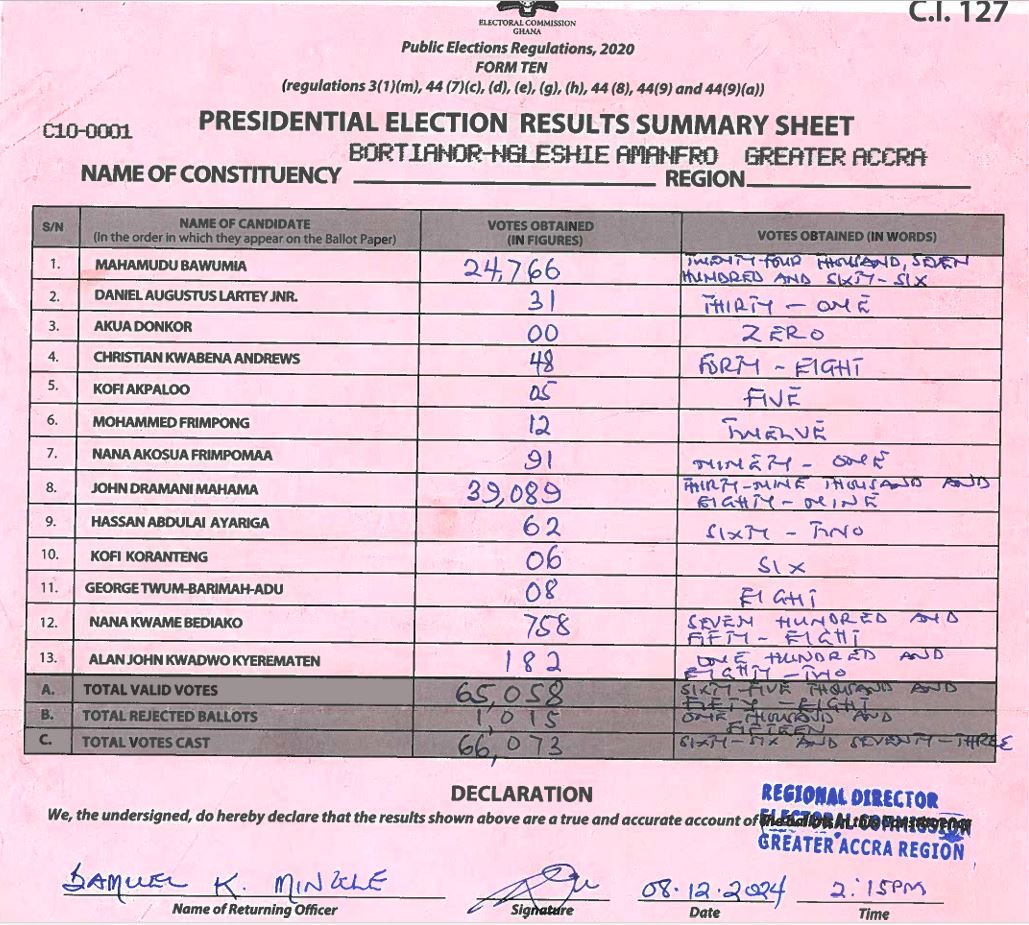 C.I. 127
ELECTORAL COMMISSION
GHANA
Public Elections Regulations, 2020
FORM TEN
(regulations 3(1)(m), 44 (7)(c), (d), (e), (g), (h), 44 (8), 44(9) and 44(9)(a))
C10-0001
PRESIDENTIAL ELECTION RESULTS SUMMARY SHEET
BORTIANOR-NGLESHIE AMANFRO GREATER ACCRA
NAME OF CONSTITUENCY REGION
S/N NAME OF CANDIDATE (In the order in which they appear on the Ballot Paper) VOTES OBTAINED (IN FIGURES) VOTES OBTAINED (IN WORDS)
1. MAHAMUDU BAWUMIA 24,766 TWENTY-FOUR THOUSAND, SEVEN HUNDRED AND SIXTY-SIX
2. DANIEL AUGUSTUS LARTEY JNR. 31 THIRTY - ONE
3. AKUA DONKOR 00 ZERO
4. CHRISTIAN KWABENA ANDREWS 48 FORTY - EIGHT
5. KOFI AKPALOO 05 FIVE
6. MOHAMMED FRIMPONG 12 TWELVE
7. NANA AKOSUA FRIMPOMAA 91 NINETY - ONE
8. JOHN DRAMANI MAHAMA 39,089 THIRTY-NINE THOUSAND AND EIGHTY-NINE
9. HASSAN ABDULAI AYARIGA 62 SIXTY - TWO
10. KOFI KORANTENG 06 SIX
11. GEORGE TWUM-BARIMAH-ADU 08 EIGHT
12. NANA KWAME BEDIAKO 758 SEVEN HUNDRED AND FIFTY - EIGHT
13. ALAN JOHN KWADWO KYEREMATEN 182 ONE HUNDRED AND EIGHTY-TWO
A. TOTAL VALID VOTES 65,058 SIXTY-FIVE THOUSAND AND FIFTY - EIGHT
B. TOTAL REJECTED BALLOTS 1,015 ONE THOUSAND AND FIFTEEN
C. TOTAL VOTES CAST 66,073 SIXTY-SIX AND SEVENTY-THREE
DECLARATION
We, the undersigned, do hereby declare that the results shown above are a true and accurate account of
REGIONAL DIRECTOR
ELECTORAL COMMISSION
GREATER ACCRA REGION
SAMUEL K. 08.12.2024 2:15PM
Name of Returning Officer Signature Date Time